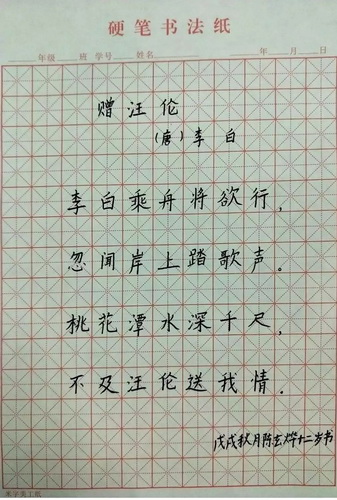 硬笔书法纸
年级 班 学号 姓名 年 月 日
赠汪伦
(唐)李白
李白乘舟将欲行,
忽闻岸上踏歌声。
桃花潭水深千尺,
不及汪伦送我情。
戊戌秋月陈玄烨十二岁书